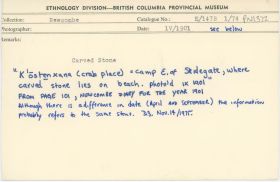 ETHNOLOGY DIVISION—BRITISH COLUMBIA PROVINCIAL MUSEUM
Collection: Newcombe Catalogue No.: E/1478 1/74 PN1575
Photographer: Date: IV/1901 see below
Remarks:
Carved Stone
"K'östənxana (crab place) = camp E. of Skidegate, where
carved stone lies on beach. photo'd IX 1901"
FROM PAGE 101, NEWCOMBE DIARY FOR THE YEAR 1901
Although there is a difference in date (APRIL and SEPTEMBER) the information
probably refers to the same stone. Nov. 14/1972